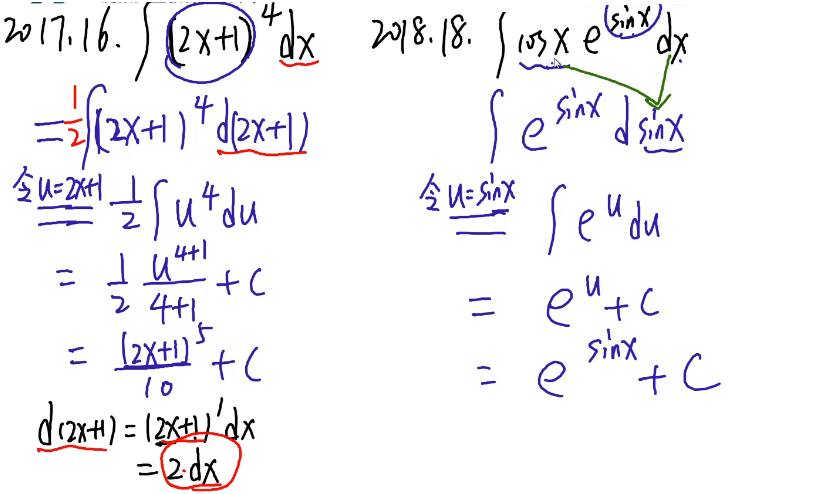 2017.16. ∫(2x+1)^4 dx
= 1/2 ∫(2x+1)^4 d(2x+1)
令u=2x+1 = 1/2 ∫u^4 du
= 1/2 u^(4+1)/(4+1) + C
= (2x+1)^5/10 + C
d(2x+1) = (2x+1)' dx
= 2·dx
2018.18. ∫cosx e^(sinx) dx
∫e^(sinx) d sinx
令u=sinx = ∫e^u du
= e^u + C
= e^(sinx) + C